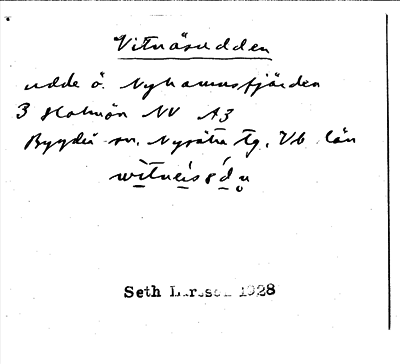 Vitnäsudden
udde ö. Nyhamnsfjärden
3 Holmön NV A3
Bygdeå sn. Nysätra tg. Vb län
Seth Larsson 1928